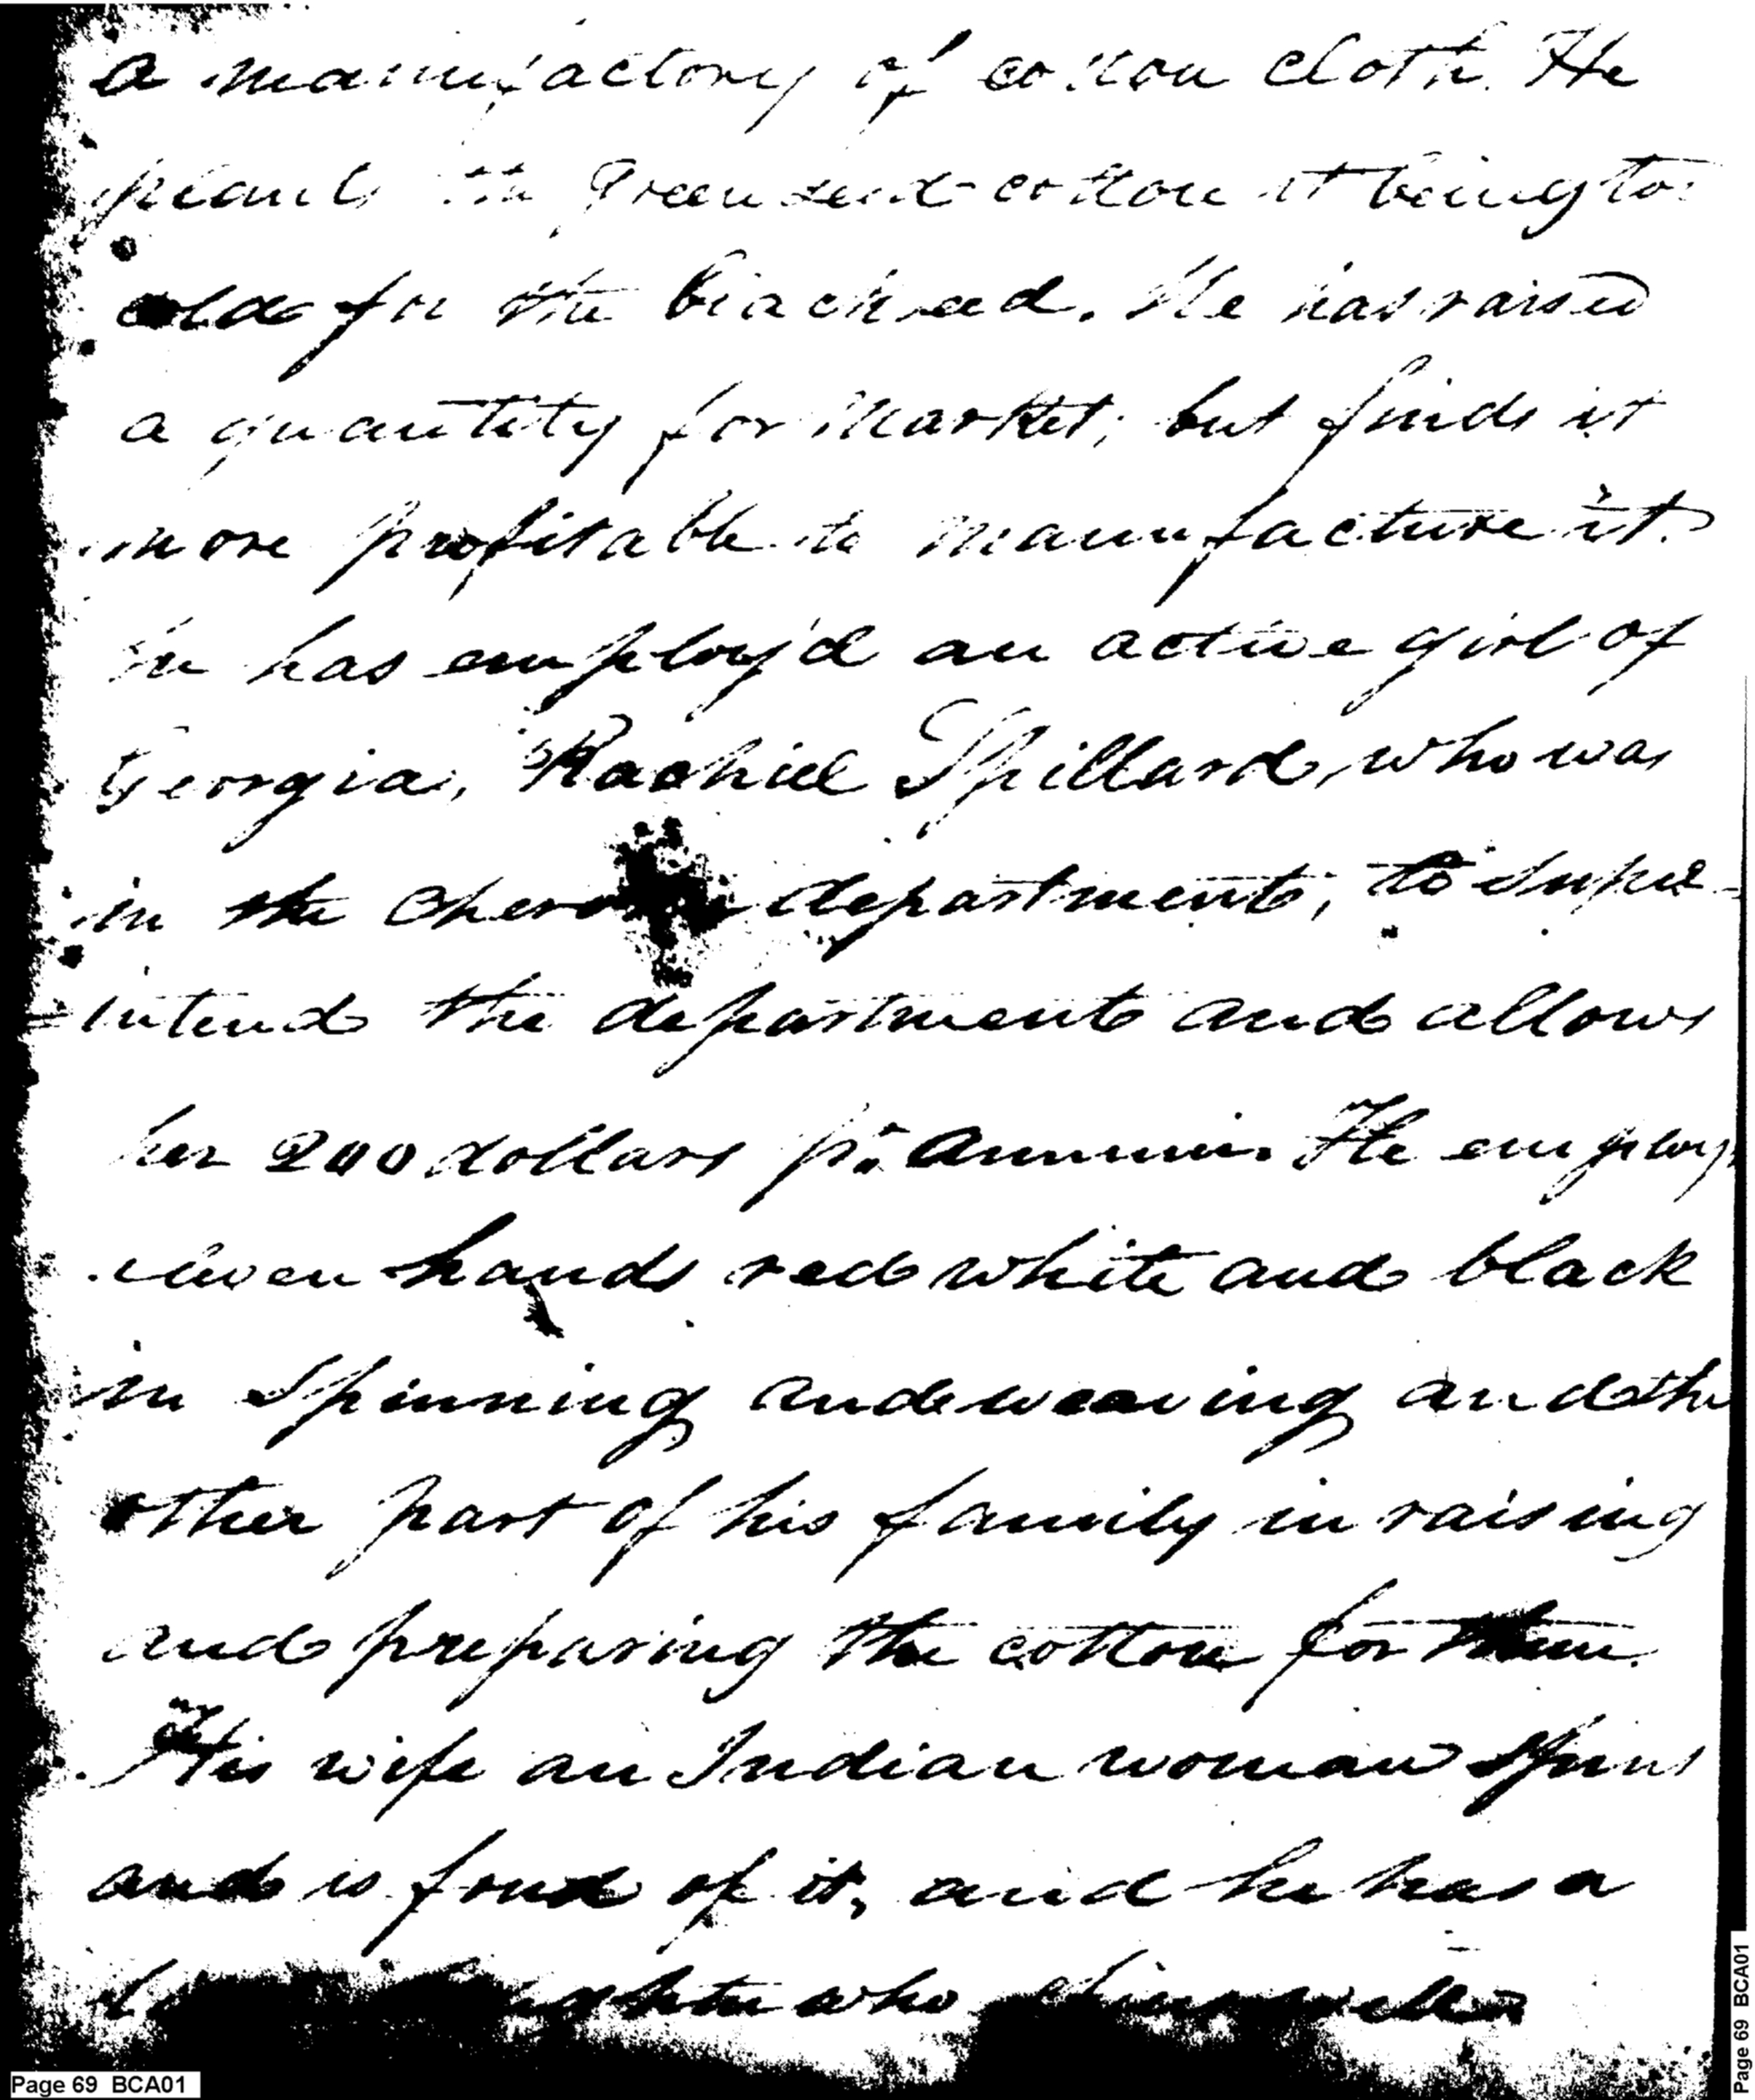 a manufactory of cotton cloth. He
plants the green seed cotton it being too
cold for the black seed. He has raised
a quantity for market, but finds it
more profitable to manufacture it.
he has employ'd an active girl of
Georgia, Rachiel Spillard, who was
in the Cherokee department, to super
=intend the department and allows
her 200 dollars pr. annum. He employs
eleven hands red white and black
in spinning and weaving and the
other part of his family in raising
and preparing the cotton for them.
His wife an Indian woman spins
and is fond of it, and he has a
daughter who spins well
Page 69 BCA01
Page 69 BCA01